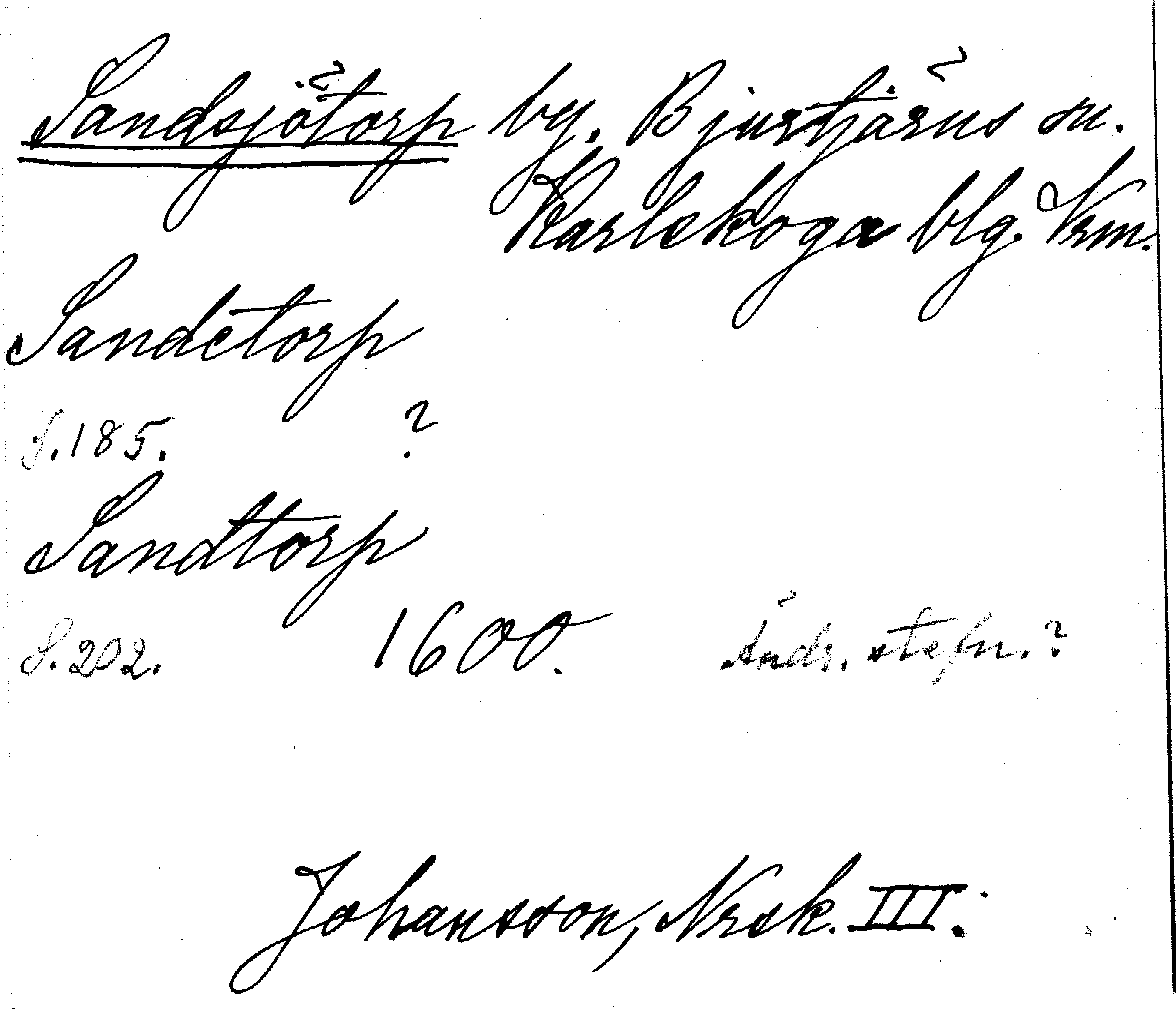 Sandsjötorp by. Bjurtjärns sn.
Karlskoga blg. Vrm.
Sandetorp
S. 185. ?
Sandtorp
S. 202. 1600. Andr. stefn.?
Johansson, Nrsk. III.